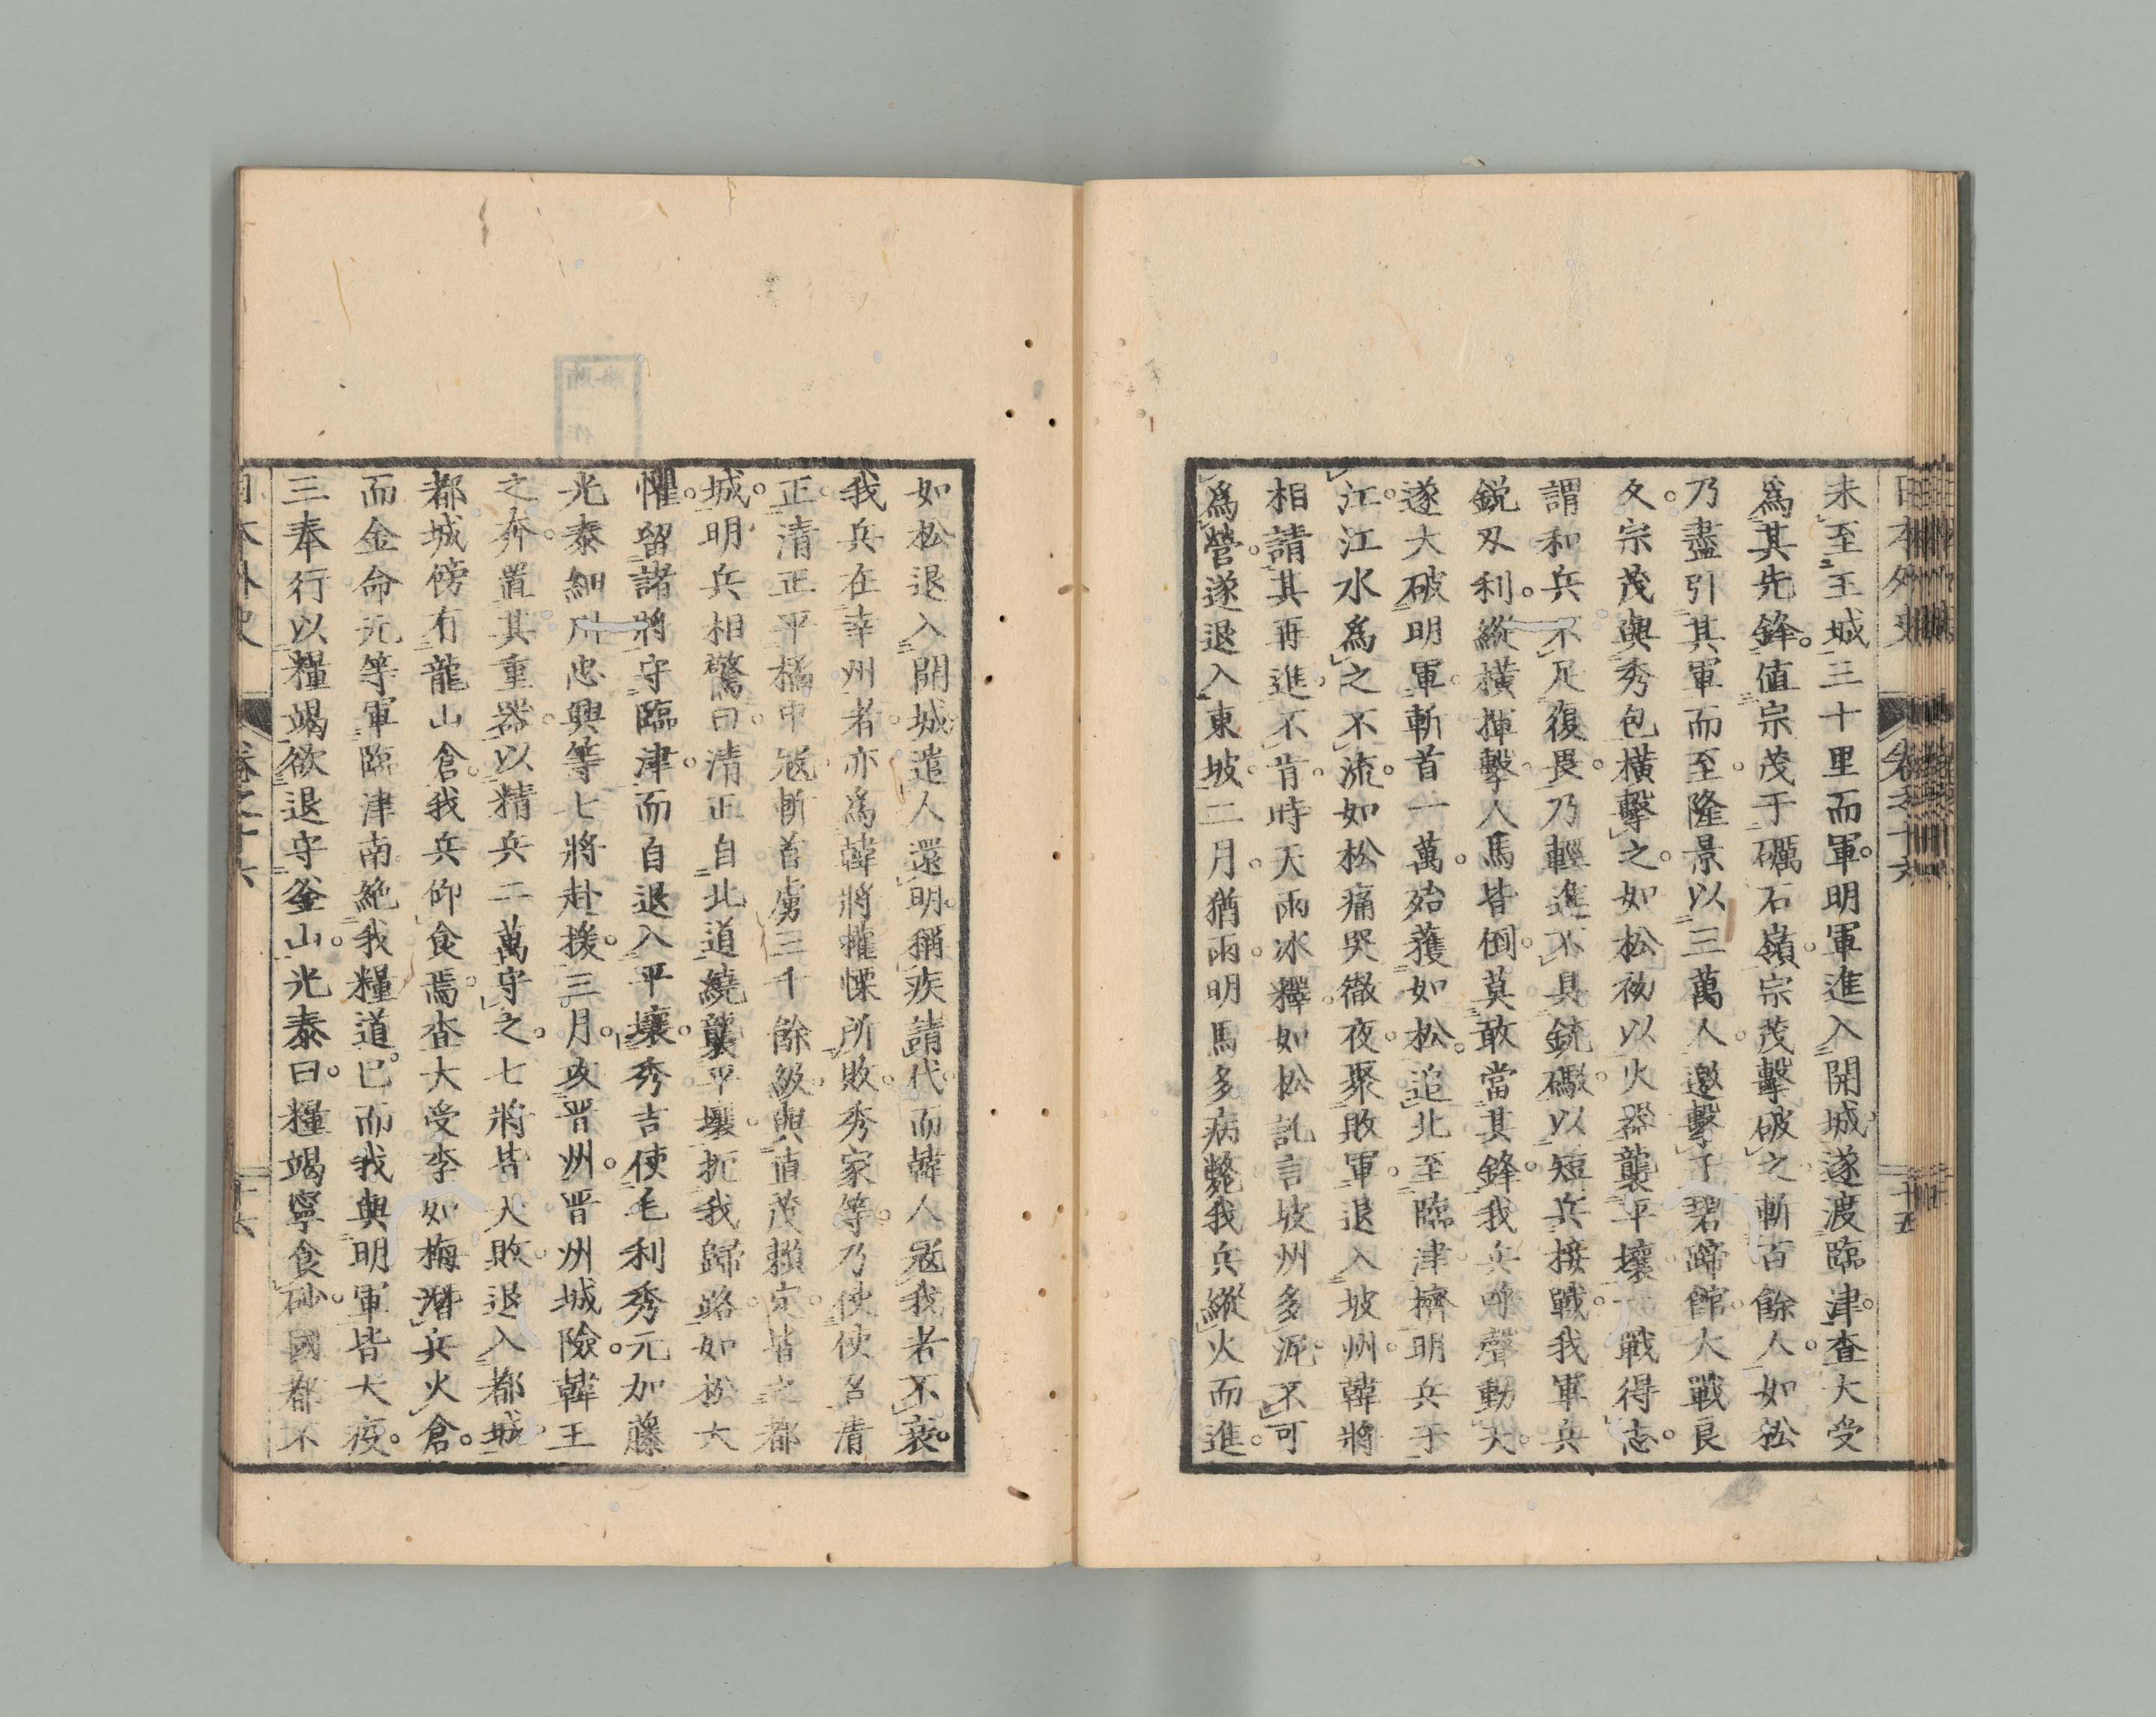 未至王城三十里而軍。明軍進入開城遂渡臨津。査大受
爲其先鋒。値宗茂于礪石嶺。宗茂擊破之斬百餘人。如松
乃盡引其軍而至。隆景以三萬人。邀擊于碧蹄館。大戰良
久。宗茂與秀包橫擊之。如松初以火器襲平壤一戰得志。
謂和兵不足復畏。乃輕進不具銃礮。以短兵接戰。我軍兵
銳刄利。縱橫揮擊。人馬皆倒。莫敢當其鋒。我兵呼聲動天。
遂大破明軍。斬首一萬。殆獲如松。追北至臨津。擠明兵于
江。江水爲之不流。如松痛哭徹夜。聚敗軍。退入坡州。韓將
相請其再進。不肯。時天雨冰釋。如松訛言坡州多泥。不可
爲營。遂退入東坡。二月。猶雨。明馬多病斃。我兵縱火而進。
如松退入開城。遣人還明。稱疾請代。而韓人寇我者不衰。
我兵在幸州者。亦爲韓將權慄所敗。秀家等。乃使使召清
正。清正平橘中寇。斬首虜三千餘級。與直茂賴定。皆之都
城。明兵相驚曰。清正自北道繞襲平壤。扼我歸路。如松大
懼。留諸將守臨津。而自退入平壤。秀吉使毛利秀元加藤
光泰細川忠興等七將赴援。三月。攻晋州。晋州城險。韓王
之奔。置其重器。以精兵二萬守之。七將皆大敗。退入都城。
都城傍有龍山倉。我兵仰食焉。査大受李如梅潛兵火倉。
而金命元等軍臨津南。絶我糧道。已而我與明軍皆大疫。
三奉行以糧竭欲退守釜山。光泰曰。糧竭寧食砂。國都不
日本外史 卷之十六 十六